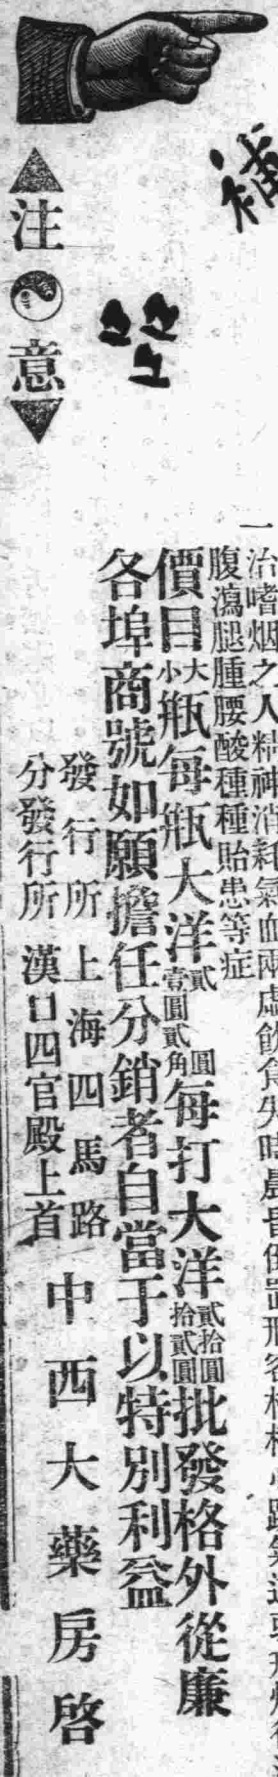 補
一治嗜烟之人精神消耗氣血兩虛飲食失時
腹瀉腿腫腰酸種種貽患等症
價目大小瓶每瓶大洋貳圓壹圓貳角每打大洋貳拾圓拾貳圓批發格外從廉
各埠商號如願擔任分銷者自當予以特別利益
發行所上海四馬路
分發行所漢口四官殿上首
中西大藥房啓
注意